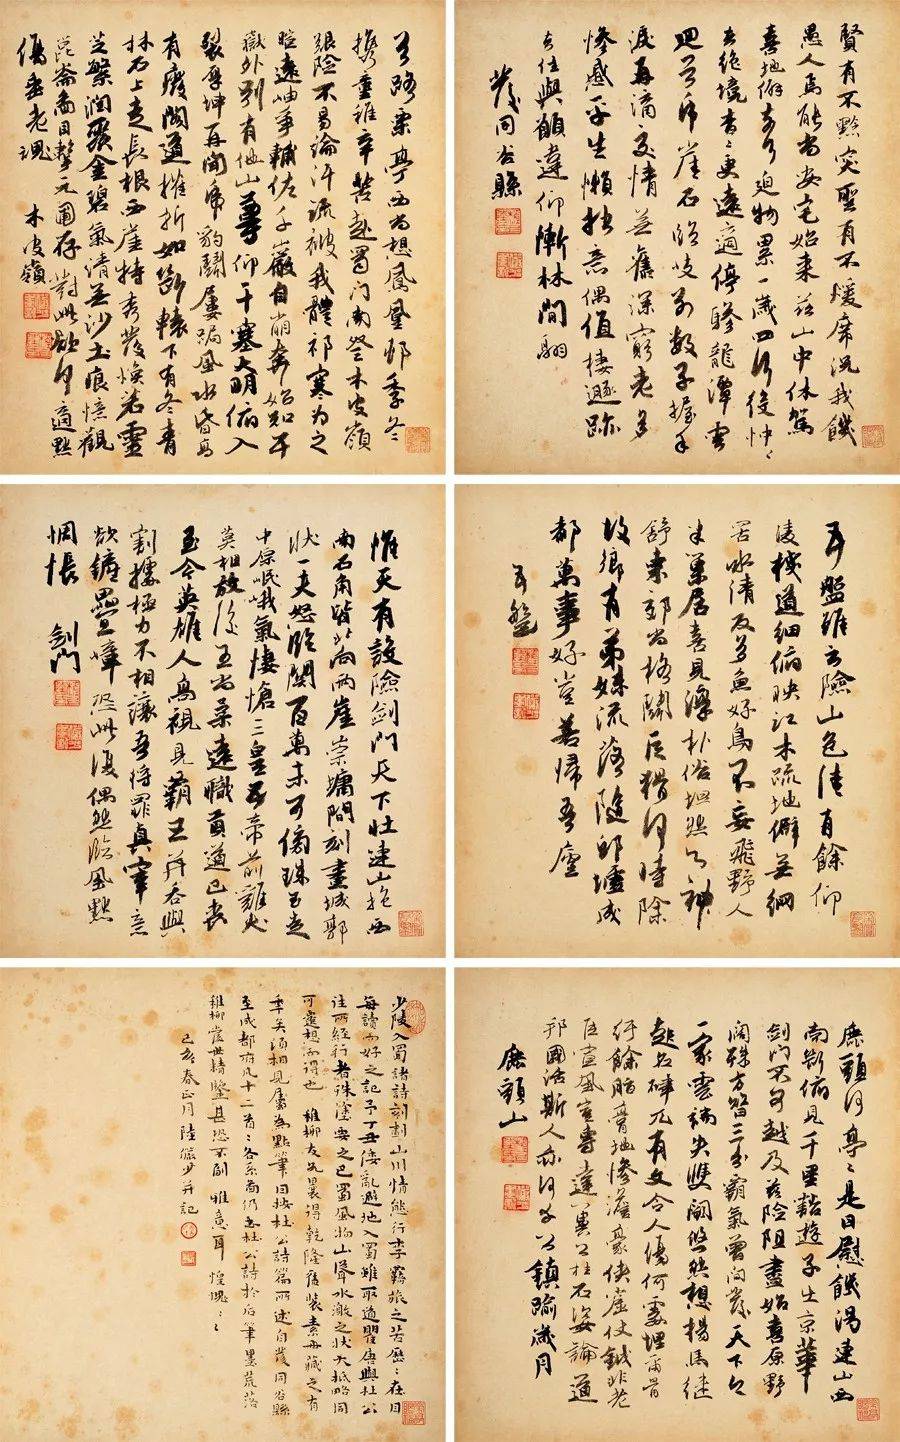 賢有不黔突聖有不煖席況我饑
愚人焉能尚安宅始來茲山中休駕
喜地僻奈何迫物累一歲四行役忡〻
去絕境杳杳更遠適停驂龍潭雲
迴首虎崖石臨岐別數子握手
淚再滴交情無舊深窮老多
慘慼平生懶拙意偶值棲遯跡
去住與願違仰慚林間翮
發同谷縣
首路栗亭西尚想鳳凰邨季冬
攜童稚辛苦赴蜀門南登木皮嶺
艱險不易論汗流被我體祁寒為之
暄遠岫爭輔佐千巖自崩奔始知五
嶽外別有他山尊仰干塞大明俯入
裂厚坤再聞虎豹鬭屢跼風水昏高
有廢閣道摧折如斷轅下有冬青
林石上走長根西崖特秀發煥若靈
芝繁潤聚金碧氣清無沙土痕憶觀
崑崙圖目擊元圃存對此欲何適默
傷垂老魂 木皮嶺
五盤雖云險山色佳有餘仰
凌棧道細俯映江木疏地僻無網
罟水清反多魚好鳥不妄飛野人
半巢居喜見淳朴俗坦然心神
舒東郊尚格鬭巨猾何時除
故鄉有弟妹流落隨邱墟成
都萬事好豈若歸吾廬
五盤
惟天有設險劍門天下壯連山抱西
南石角皆北向兩崖崇墉倚刻畫城郭
狀一夫怒臨關百萬未可傍珠玉走
中原岷峨氣悽愴三皇五帝前雞犬
莫相放後王尚柔遠職貢道已喪
至今英雄人高視見霸王并吞與
割據極力不相讓吾將罪真宰意
欲鏟疊嶂恐此復偶然臨風默
惆悵 劍門
鹿頭何亭〻是日慰饑渴連山西
南斷俯見千里豁遊子出京華
劍門不可越及茲險阻盡始喜原野
闊殊方昔三分霸氣曾間發天下今
一家雲端失雙闕悠然想楊馬繼
起名硉兀有文令人傷何處埋爾骨
紆餘脂膏地慘澹豪俠窟仗鉞非老
臣宣風豈專達冀公柱石姿論道
邦國活斯人亦何幸公鎮踰歲月
鹿頭山
少陵入蜀諸詩刻劃山川情態行李羈旅之苦歷〻在目
每讀而好之記予丁丑倭亂避地入蜀雖取道瞿唐與杜公
往所經行者殊塗要之巴蜀風物山聳水激之狀大抵略同
可靈想而得也 稚柳友兄曩得乾隆舊裝素冊藏之有
年矣須相見屬為點筆因按杜公詩篇所述自發同谷縣
至成都府凡十二首〻各系圖仍書杜公詩於後筆墨荒落
稚柳當世精鑒甚恐不副 雅意耳 惶愧〻〻
己亥春正月 陸儼少并記